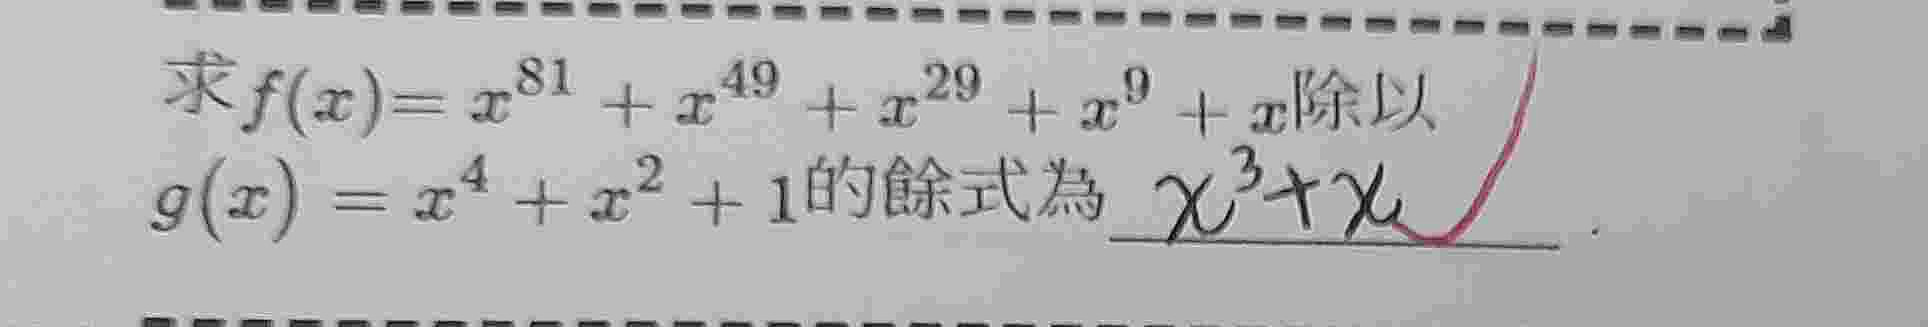 求f(x)= x^81 + x^49 + x^29 + x^9 + x除以
g(x) = x^4 + x^2 + 1的餘式為 x^3+x .